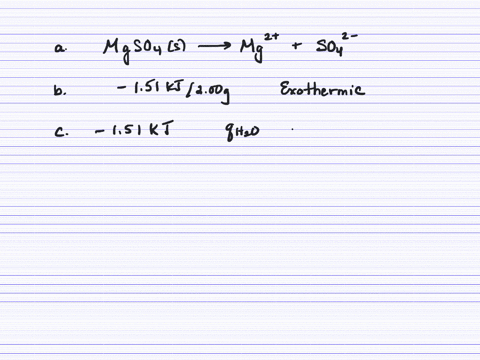 a. MgSO₄(s) ⟶ Mg²⁺ + SO₄²⁻
b. - 1.51 KJ/2.00g Exothermic
c. - 1.51 KJ qH₂O